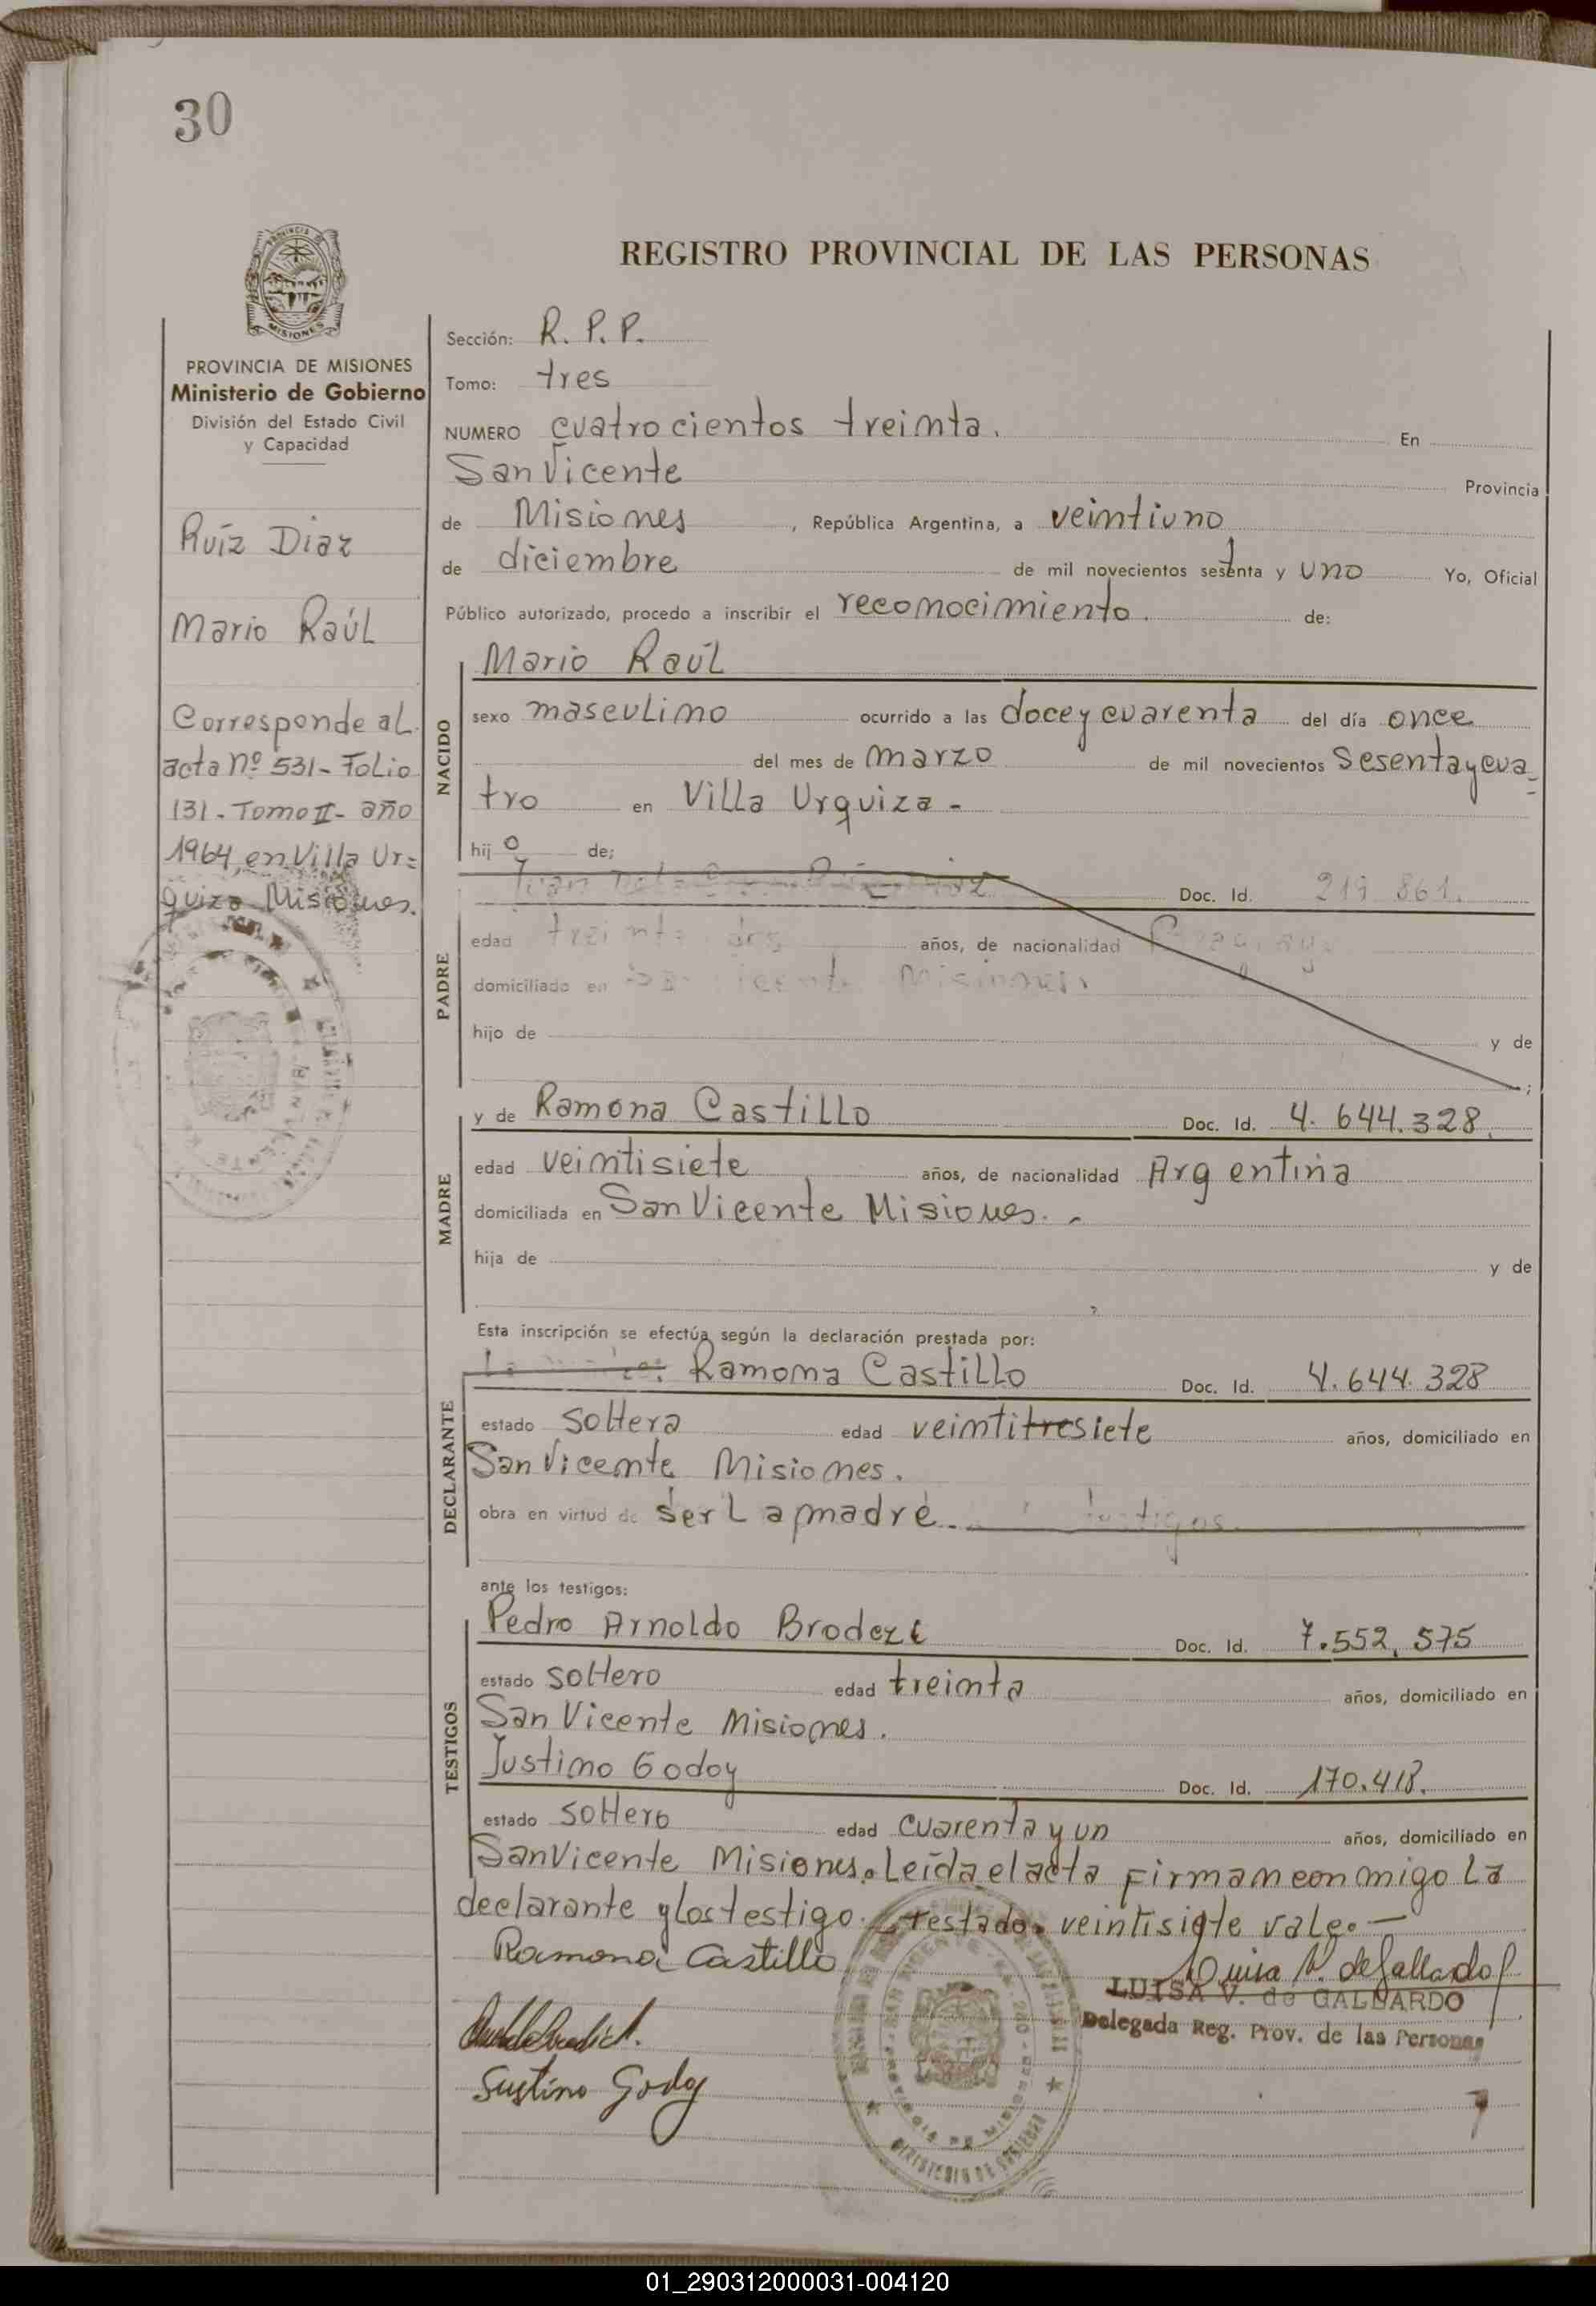 30
REGISTRO PROVINCIAL DE LAS PERSONAS
PROVINCIA
MISIONES
PROVINCIA DE MISIONES
Ministerio de Gobierno
División del Estado Civil
y Capacidad
Ruíz Diaz
Mario Raúl
Corresponde al
acta nº 531- Folio
131- Tomo II- año
1964, en Villa Ur=
quiza Misiones.
Sección: R. P. P.
Tomo: tres
NUMERO cuatrocientos treinta. En
San Vicente Provincia
de Misiones, República Argentina, a veintiuno
de diciembre de mil novecientos sesenta y uno Yo, Oficial
Público autorizado, procedo a inscribir el reconocimiento. de:
NACIDO
Mario Raúl
sexo masculino ocurrido a las doce y cuarenta del día once
del mes de marzo de mil novecientos Sesenta y cua-
tro en Villa Urquiza -
hijo de;
PADRE
Juan Doc. Id. 219 861.
edad treinta dos años, de nacionalidad
domiciliado en Misiones.
hijo de y de
;
MADRE
y de Ramona Castillo Doc. Id. 4.644.328.
edad veintisiete años, de nacionalidad Argentina
domiciliada en San Vicente Misiones. -
hija de y de
Esta inscripción se efectúa según la declaración prestada por:
DECLARANTE
Ramona Castillo Doc. Id. 4.644.328
estado soltera edad veintitresiete años, domiciliado en
San Vicente Misiones.
obra en virtud de ser la madre. testigos
ante los testigos:
TESTIGOS
Pedro Arnoldo Doc. Id. 7.552.575
estado soltero edad treinta años, domiciliado en
San Vicente Misiones.
Justino Godoy Doc. Id. 170.418.
estado soltero edad cuarenta y un años, domiciliado en
San Vicente Misiones. Leída el acta firman conmigo la
declarante y los testigo. testado. veintisiete vale. —
Ramona Castillo
Luisa V. de Gallardo
LUISA V. de GALLARDO
Delegada Reg. Prov. de las Personas
Justino Godoy
01_290312000031-004120